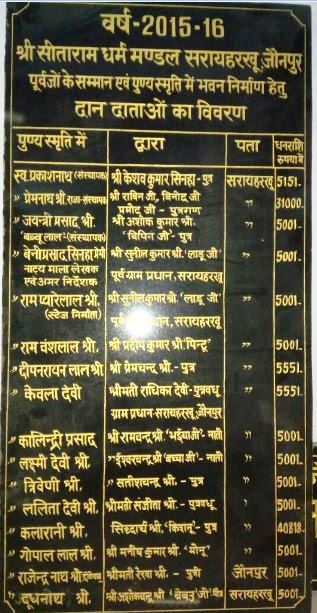 वर्ष-2015-16
श्री सीताराम धर्म मण्डल सरायहरखू, जौनपुर
पूर्वजों के सम्मान एवं पुण्य स्मृति में भवन निर्माण हेतु
दान दाताओं का विवरण
पुण्य स्मृति में द्वारा पता धनराशि रुपया में
स्व. प्रकाशनाथ (संस्थापक) श्री केशव कुमार सिनहा - पुत्र सरायहरखू 5151-
" प्रेमनाथ श्री. राजा-(संस्थापक) श्री राबिन जी, विनोद जी " 31000-
प्रमोद जी - पुत्रगण
" जयन्त्री प्रसाद श्री. श्री अशोक कुमार श्री. " 5001-
बब्बू लाल-(संस्थापक) 'बिपिन जी'- पुत्र
" बेनीप्रसाद सिनहा प्रेमी श्री सुनील कुमार श्री. 'लाडू जी' " 5001-
नाट्य माला लेखक पूर्व ग्राम प्रधान, सरायहरखू
एवं अमर निर्देशक
" राम प्यारेलाल श्री. श्री सुनील कुमार श्री. 'लाडू जी' " 5001-
(स्टेज निर्माता) पूर्व प्रधान, सरायहरखू
" राम वंशलाल श्री. श्री प्रदीप कुमार श्री. 'पिन्टू' " 5001-
" दीपनरायन लाल श्री. श्री प्रेमचन्द्र श्री. - पुत्र " 5551-
" केवला देवी श्रीमती राधिका देवी - पुत्रवधू " 5551-
ग्राम प्रधान-सरायहरखू जौनपुर
" कालिन्द्री प्रसाद श्री रामचन्द्र श्री. 'भईया जी'- नाती " 5001-
" लक्ष्मी देवी श्री. " ईश्वरचन्द्र श्री. 'बच्चा जी'- नाती " 5001-
" त्रिवेणी श्री. " सतीशचन्द्र श्री. - पुत्र " 5001-
" ललिता देवी श्री. श्रीमती संजीता श्री. - पुत्रवधू " 5001-
" कलारानी श्री. सिद्धार्थ श्री. - पुत्र " 40818-
" गोपाल लाल श्री. श्री मनीष कुमार श्री. 'मोनू' " 5001-
" राजेन्द्र नाथ श्री. श्रीमती रेखा श्री. - पुत्री जौनपुर 5001-
" दूधनाथ श्री. श्री अशोकचन्द्र श्री. जी'- पौत्र सरायहरखू 5001-